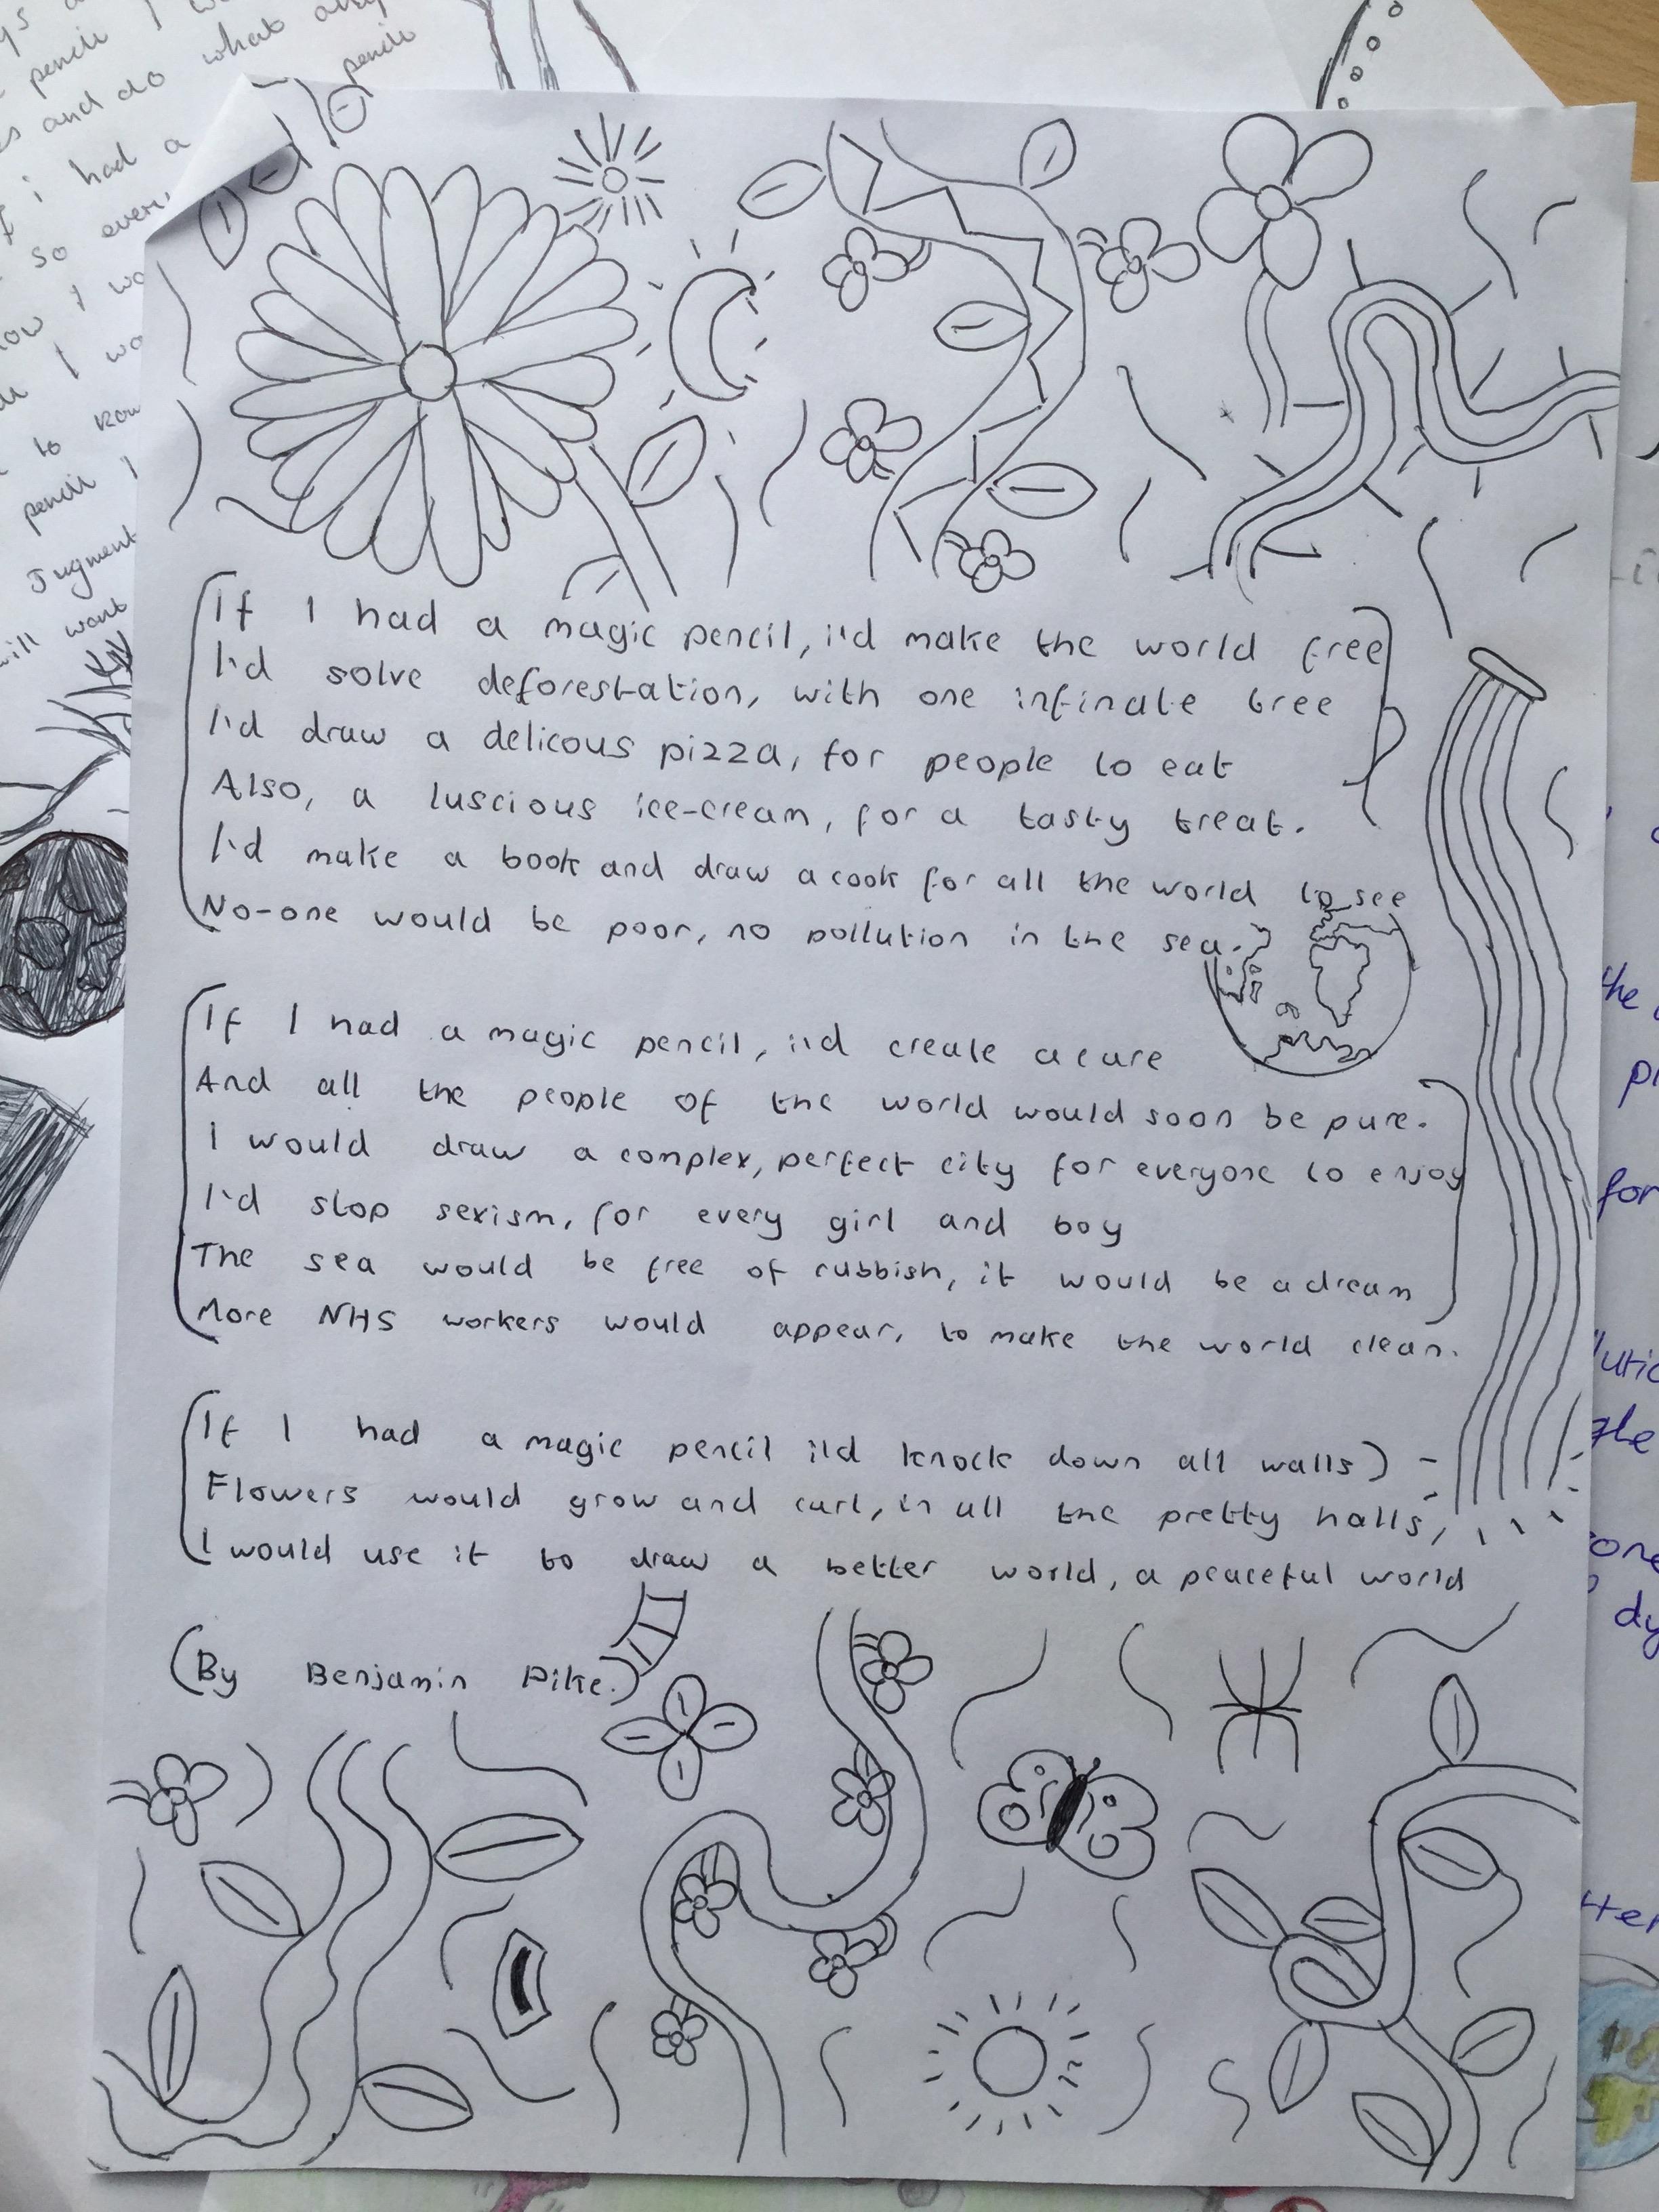 If I had a magic pencil, i'd make the world free
I'd solve deforestation, with one infinate tree
I'd draw a delicous pizza, for people to eat
Also, a luscious ice-cream, for a tasty treat.
I'd make a book and draw a cook for all the world to see
No-one would be poor, no pollution in the sea.
If I had a magic pencil, i'd create a cure
And all the people of the world would soon be pure.
I would draw a complex, perfect city for everyone to enjoy
I'd stop sexism, for every girl and boy
The sea would be free of rubbish, it would be a dream
More NHS workers would appear, to make the world clean.
If I had a magic pencil i'd knock down all walls
Flowers would grow and curl, in all the pretty halls,
I would use it to draw a better world, a peaceful world
(By Benjamin Pike.)
pencil I
and do what
pencil
if i had a
so
I
I
to
pencil I
Jugment
will want
the
for